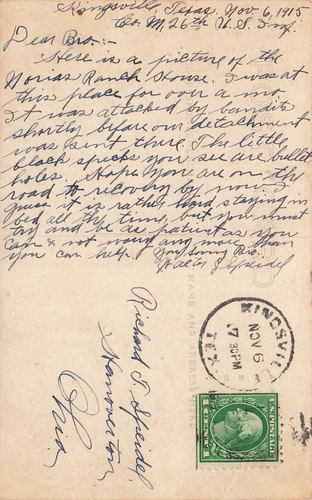 Kingsville, Texas. Nov. 6, 1915
Co. M, 26th U.S. Inf.
Dear Bro.:-
Here is a picture of the
Norias Ranch House. I was at
this place for over a mo.
It was attacked by bandits
shortly before our detachment
was sent there. The little
black specks you see are bullet
holes. Hope you are on the
road to recovery by now. I
guess it is rather hard staying in
bed all the time, but you must
try and be as patient as you
can & not worry any more than
you can help. Your loving Bro.
Speidel
Richard T. Speidel,
Hanoverton,
Ohio.
NAME AND ADDRESS HERE
KINGSVILLE
NOV 6
7 30PM
TEX.
U.S. POSTAGE